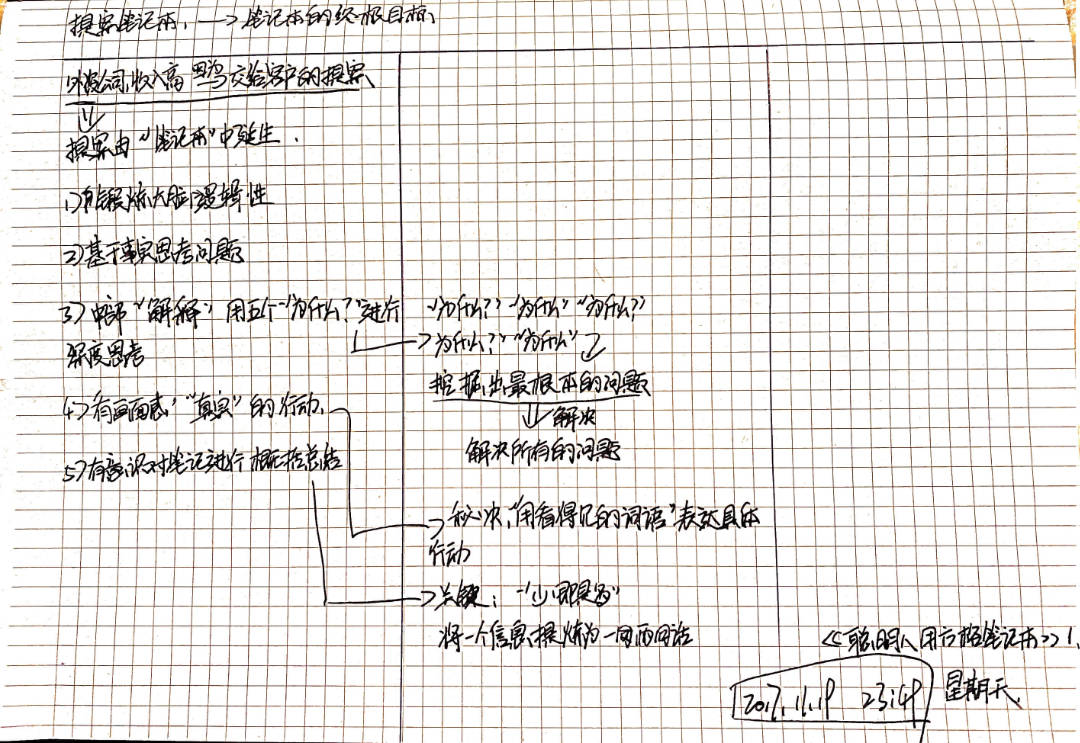 提案笔记本, → 笔记本的终极目标,
外资公司,收入高 交给客户的提案
提案由“笔记本”中诞生.
1)有锻炼大脑逻辑性
2)基于事实思考问题
3)中部“解释”用五个“为什么?”进行
深度思考
“为什么?”“为什么”“为什么?”
“为什么?”“为什么”
挖掘出最根本的问题
解决
解决所有的问题
4)有画面感,“真实”的行动,
5)有意识对笔记进行概括总结
秘诀,“用看得见的词语”表达具体
行动
关键:“少即是多”
将一个信息提炼为一两句话
<<聪明人用方格笔记本>>
2017.11.19 23:49 星期天